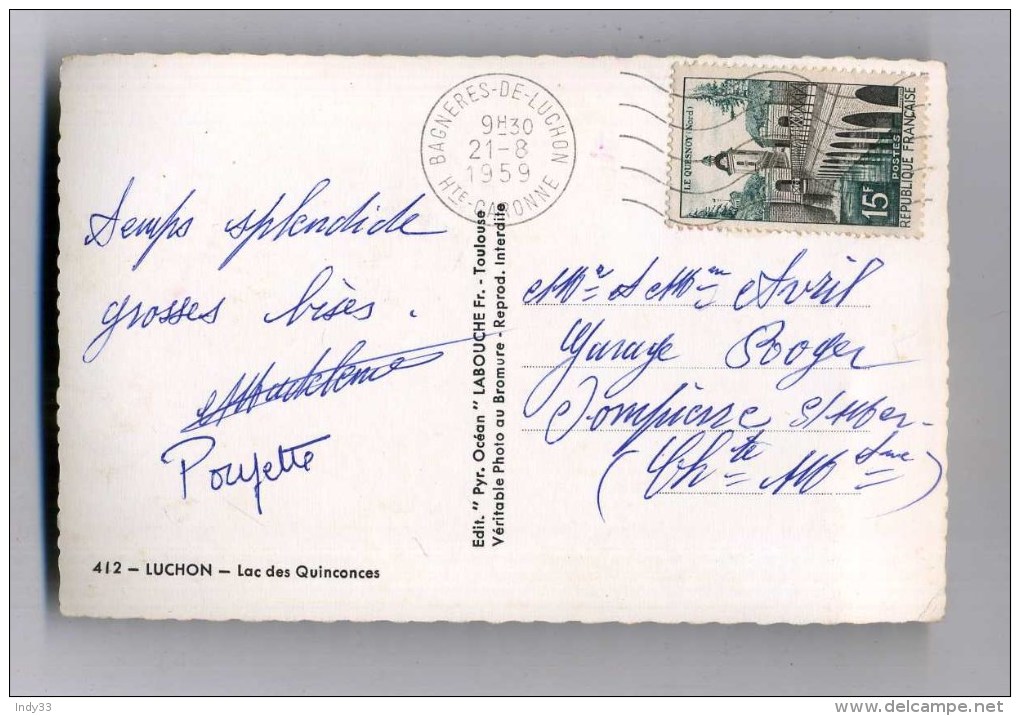 BAGNERES-DE-LUCHON
9H30
21-8
1959
HTE-GARONNE
LE QUESNOY (Nord)
15F
POSTES
REPUBLIQUE FRANÇAISE
Temps splendide
grosses bises.
Madeleine
Poujette
412 – LUCHON – Lac des Quinconces
Edit. " Pyr. Océan " LABOUCHE Fr. - Toulouse
Véritable Photo au Bromure - Reprod. Interdite
Mr & Mme Avril
Garage Roger
Dompierre s/Mer.
(Chte Mme)
Indy33
www.delcampe.net